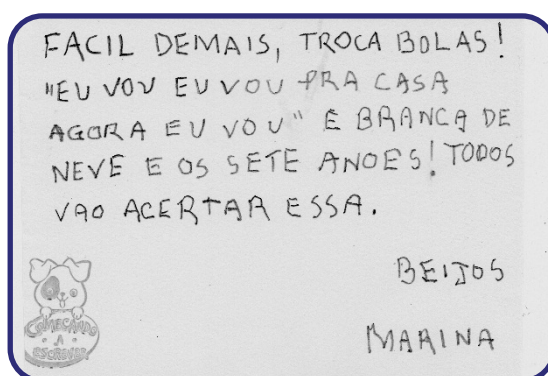 FACIL DEMAIS, TROCA BOLAS!
"EU VOU EU VOU PRA CASA
AGORA EU VOU" E BRANCA DE
NEVE E OS SETE ANOES! TODOS
VAO ACERTAR ESSA.
BEIJOS
MARINA
COMEÇANDO
A
ESCREVER